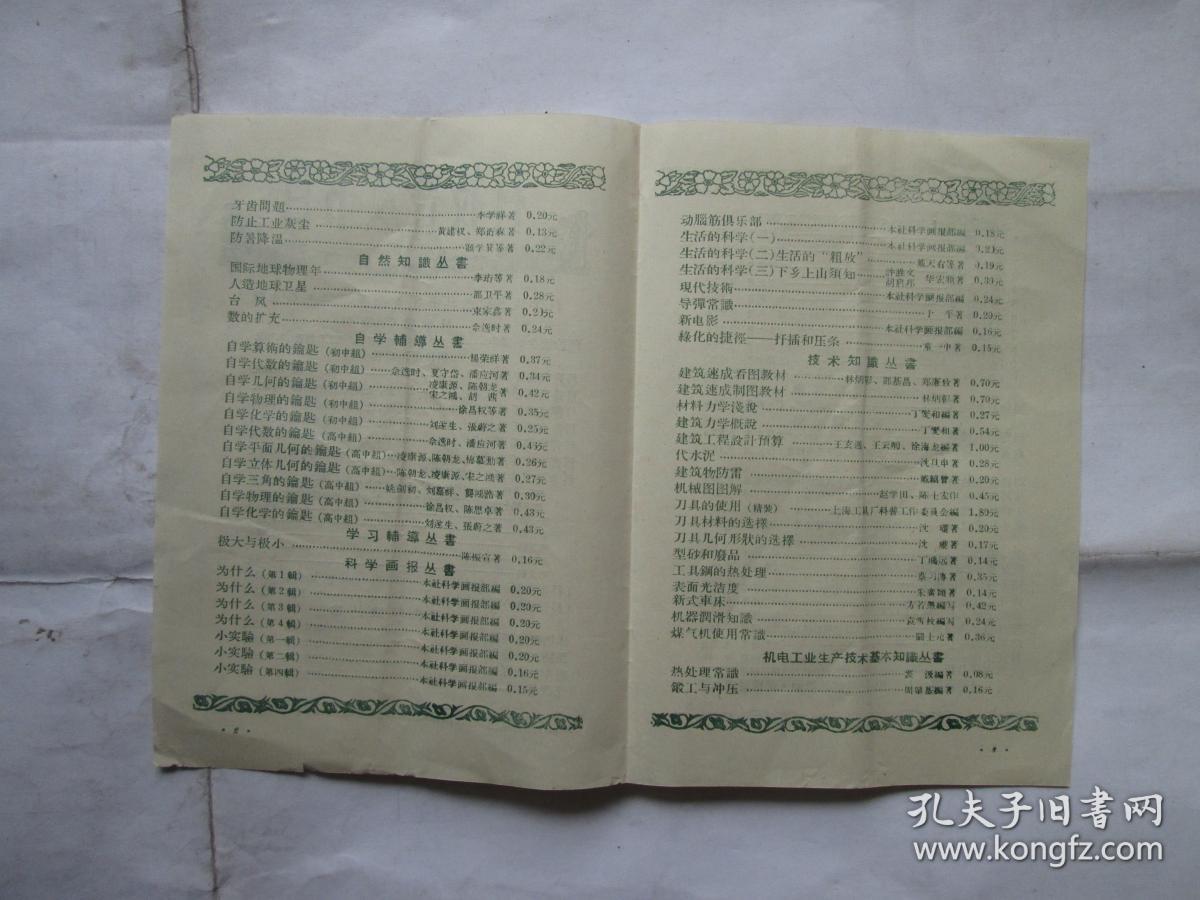 牙齿問題……李学祥著 0.20元
防止工业灰尘……黄建权、郑 著 0.13元
防暑降温……等著 0.22元
自然知識丛書
国际地球物理年……李珩等著 0.18元
人造地球卫星……邵卫平著 0.28元
台風……束家鑫著
数的扩充……余 时著 0.24元
自学輔導丛書
自学算術的鑰匙(初中組)……楊荣祥著 0.37元
自学代数的鑰匙(初中組)……余 时、夏守岱、潘应河著 0.34元
自学几何的鑰匙(初中組)……凌康源、陈朝龙、宋之 、胡 著 0.42元
自学物理的鑰匙(初中組)……徐昌权等著 0.35元
自学化学的鑰匙(初中組)……刘 生、張蔚之著 0.25元
自学代数的鑰匙(高中組)……余 时、潘应河著 0.43元
自学平面几何的鑰匙(高中組)……凌康源、陈朝龙、 著 0.26元
自学立体几何的鑰匙(高中組)……陈朝龙、凌康源、宋之 著 0.27元
自学三角的鑰匙(高中組)……姚 初、刘 祥、 著 0.30元
自学物理的鑰匙(高中組)……徐昌权、陈思卓著 0.43元
自学化学的鑰匙(高中組)……刘 生、張蔚之著 0.43元
学习輔導丛書
极大与极小……陈振宣著 0.16元
科学画报丛書
为什么(第1輯)……本社科学画报部編 0.20元
为什么(第2輯)……本社科学画报部編 0.20元
为什么(第3輯)……本社科学画报部編 0.20元
为什么(第4輯)……本社科学画报部編 0.20元
小实驗(第一輯)……本社科学画报部編 0.20元
小实驗(第二輯)……本社科学画报部編 0.16元
小实驗(第四輯)……本社科学画报部編 0.15元
动腦筋俱乐部……本社科学画报部編 0.18元
生活的科学(一)……本社科学画报部編 0.20元
生活的科学(二)生活的“粗放”……戴天右等著 0.19元
生活的科学(三)下乡上山須知……著
現代技術……本社科学画报部編 0.24元
导彈常識……于 著 0.20元
新电影……本社科学画报部編 0.16元
綠化的捷徑——扦插和压条……著 0.15元
技术知識丛書
建筑速成看图教材……林炳彰、郭基昌、郑 著 0.70元
建筑速成制图教材……林炳彰著 0.70元
材料力学淺說……丁燮和編著 0.27元
建筑力学概說……丁燮和著 0.54元
建筑工程設計預算……王玄通、王云 、徐海龙編著 1.00元
代水泥……沈旦申著 0.28元
建筑物防雷……著 0.20元
机械图图解……赵学田、陈士 作 0.45元
刀具的使用(精装)……上海工具厂科普工作委员会編 1.80元
刀具材料的选擇……沈 著 0.20元
刀具几何形狀的选擇……沈 著 0.17元
型砂和廢品……著 0.14元
工具鋼的热处理……著 0.35元
表面光洁度……著 0.14元
新式車床……編写 0.42元
机器潤滑知識……編写 0.24元
煤气机使用常識……著 0.36元
机电工业生产技术基本知識丛書
热处理常識……編著 0.08元
鍛工与冲压……編著 0.16元
孔夫子旧书网
www.kongfz.com